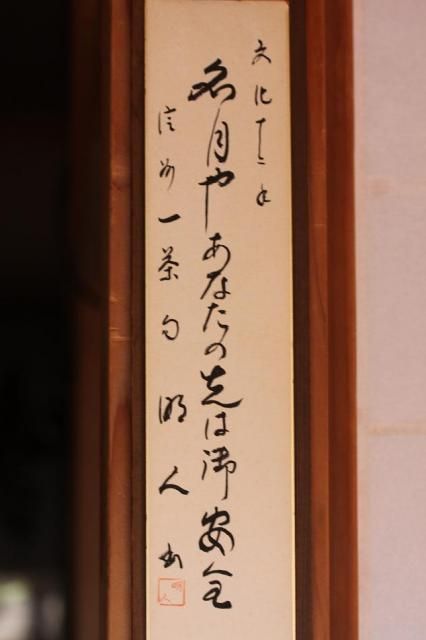 文化十二年
名月やあなたの先は御安全
信州一茶句 明人書
明人